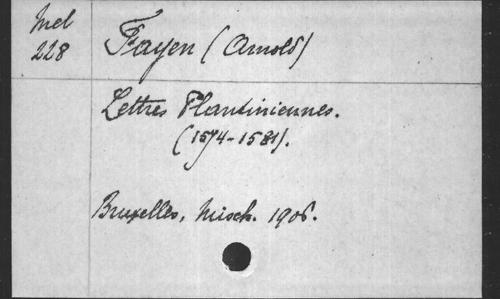 Mel
228
Fayen (Arnold)
Lettres Plantiniennes.
(1574-1581).
Bruxelles, Misch. 1906.